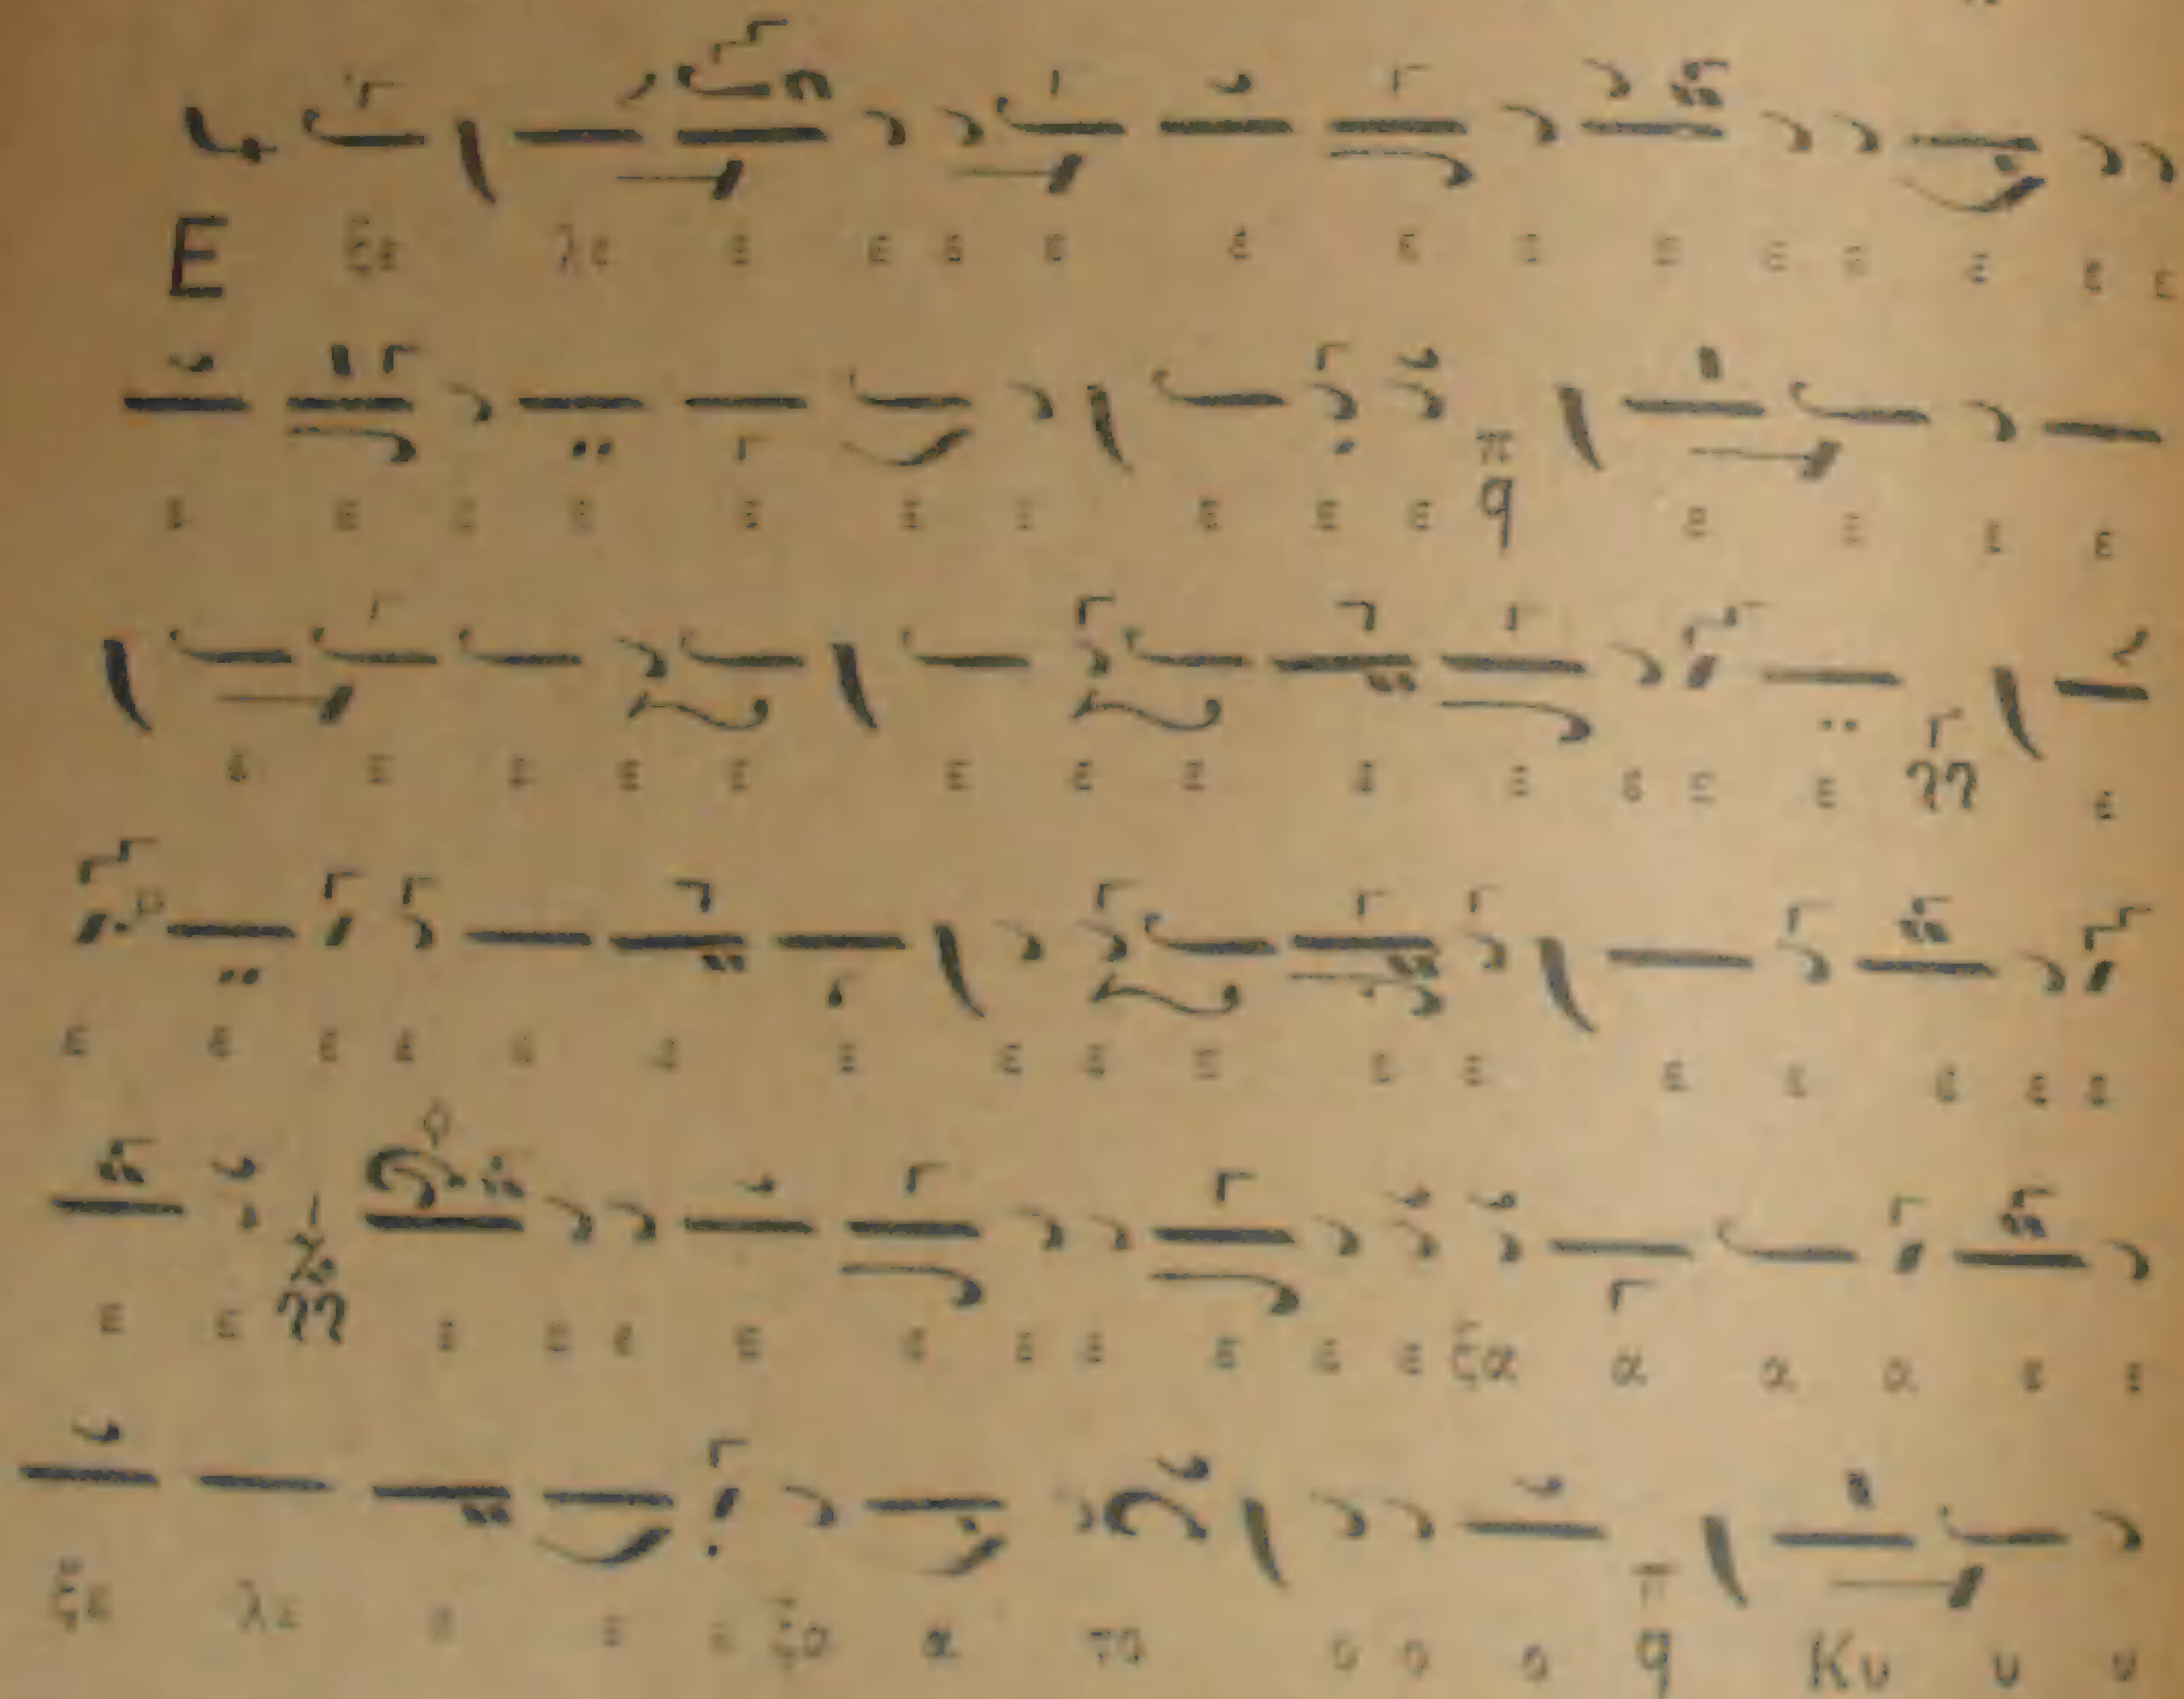 Ε ξε λε ε ε ε ε ε ε ε ε ε ε ε ε ε
ε ε ε ε ε ε ε ε ε ε π q ε ε ε ε
ε ε ε ε ε ε ε ε ε ε ε ε ε ε
ε ε ε ε ε ε ε ε ε ε ε ε ε ε ε ε ε
ε ε ε ε ε ε ε ε ε ε ε ε ξα α α α ε ε
ξε λε ε ε ε ξα α το ο ο ο π q Κυ υ υ